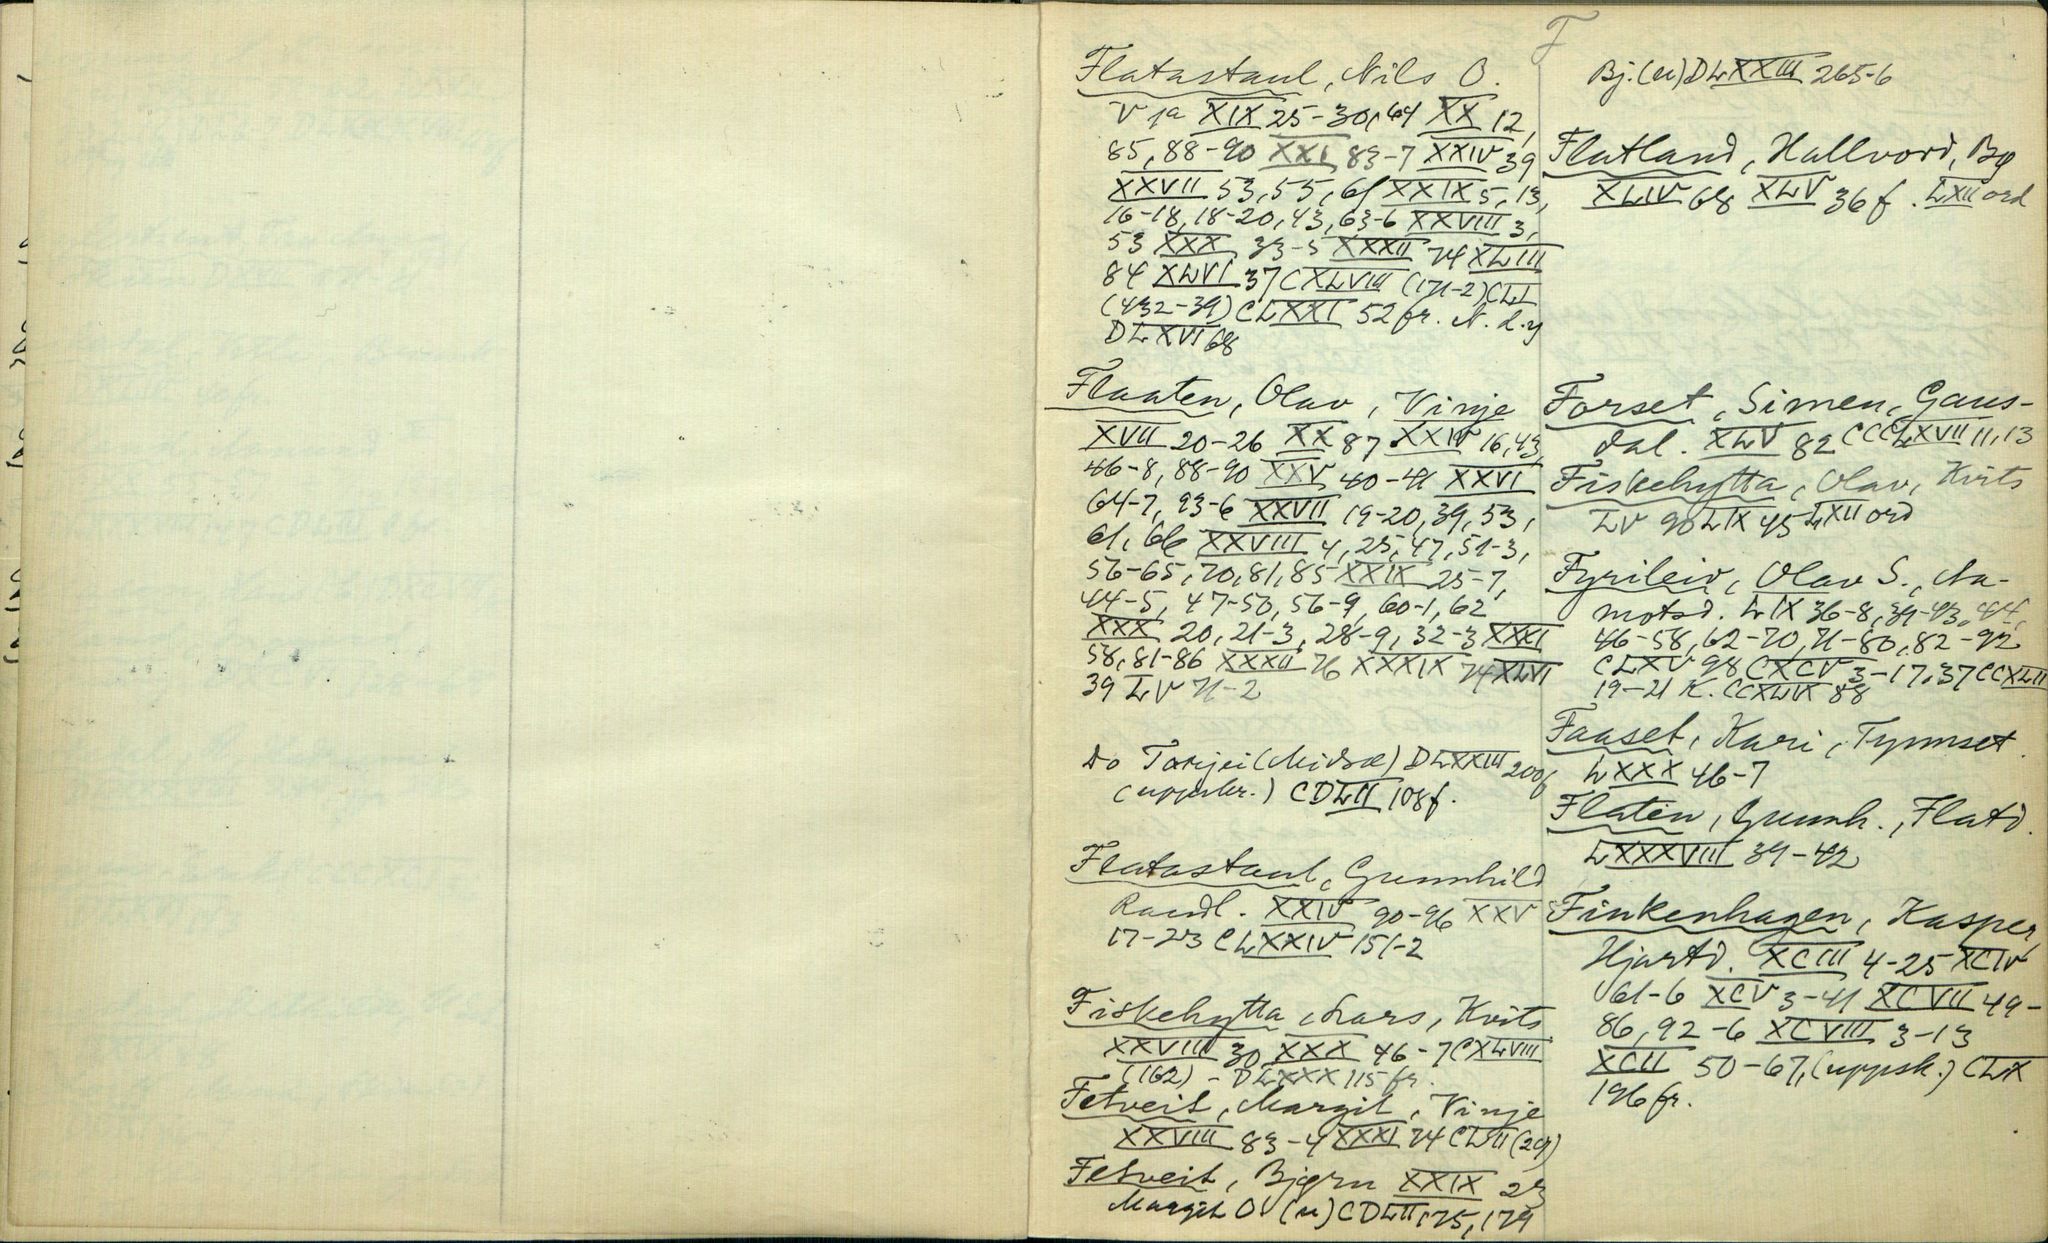 F
Flatastaul, Nils O.
V 1a XIX 25-30, 64 XX 12,
85, 88-90 XXI 83-7 XXIV 39
XXVII 53, 55, 61 XXIX 5, 13,
16-18, 18-20, 43, 63-6 XXVIII 3,
53 XXX 33-5 XXXII 74 XLIII
84 XLVI 37 CXLVIII (171-2) CLI
(432-39) CLXXI 52 fr. N. d.y
DLXVI 68
Flaaten, Olav, Vinje
XVII 20-26 XX 87 XXIV 16, 43,
46-8, 88-90 XXV 40-41 XXVI
64-7, 93-6 XXVII 19-20, 39, 53,
61, 66 XXVIII 4, 25, 47, 51-3,
56-65, 70, 81, 85 XXIX 25-7,
44-5, 47-50, 56-9, 60-1, 62
XXX 20, 21-3, 28-9, 32-3 XXXI
58, 81-86 XXXII 76 XXXIX 74 XLVI
39 LV 71-2
Do Tarjei (Midsæ) DLXXIII 200f
(uppskr.) CDLII 108f.
Flatastaul, Gunnhild
Raudl. XXIV 90-96 XXV
17-23 CLXXIV 151-2
Fiskehytta, Lars, Kvits
XXVIII 30 XXX 46-7 CXLVIII
(162) - DLXXX 115 fr.
Fetveit, Margit, Vinje
XXVIII 83-4 XXXI 74 CLII (29)
Fetveit, Bjørn XXIX 23
Margit O (u) CDLII 175, 179
Bj. (u) DLXXIII 265-6
Flatland, Hallvord, Bø
XLIV 68 XLV 36 f. LXII ord
Forset, Simen, Gaus-
dal. XLV 82 CCCLXVII 11, 13
Fiskehytta, Olav, Kvits
LV 90 LIX 45 LXII ord
Fyrileiv, Olav S., Aa-
motsd. LIX 36-8, 39-43, 44,
46-58, 62-70, 71-80, 82-92
CLXV 98 CXCV 3-17, 37 CCXLII
19-21 K. CCXLIX 88
Faaset, Kari, Tynnset.
LXXX 46-7
Flatin, Gunnh., Flatd.
LXXXVIII 39-42
Finkenhagen, Kasper,
Hjartd. XCIII 4-25 XCIV
61-6 XCV 3-41 XCVII 49-
86, 92-6 XCVIII 3-13
XCII 50-67, (uppsk.) CLX
196 fr.